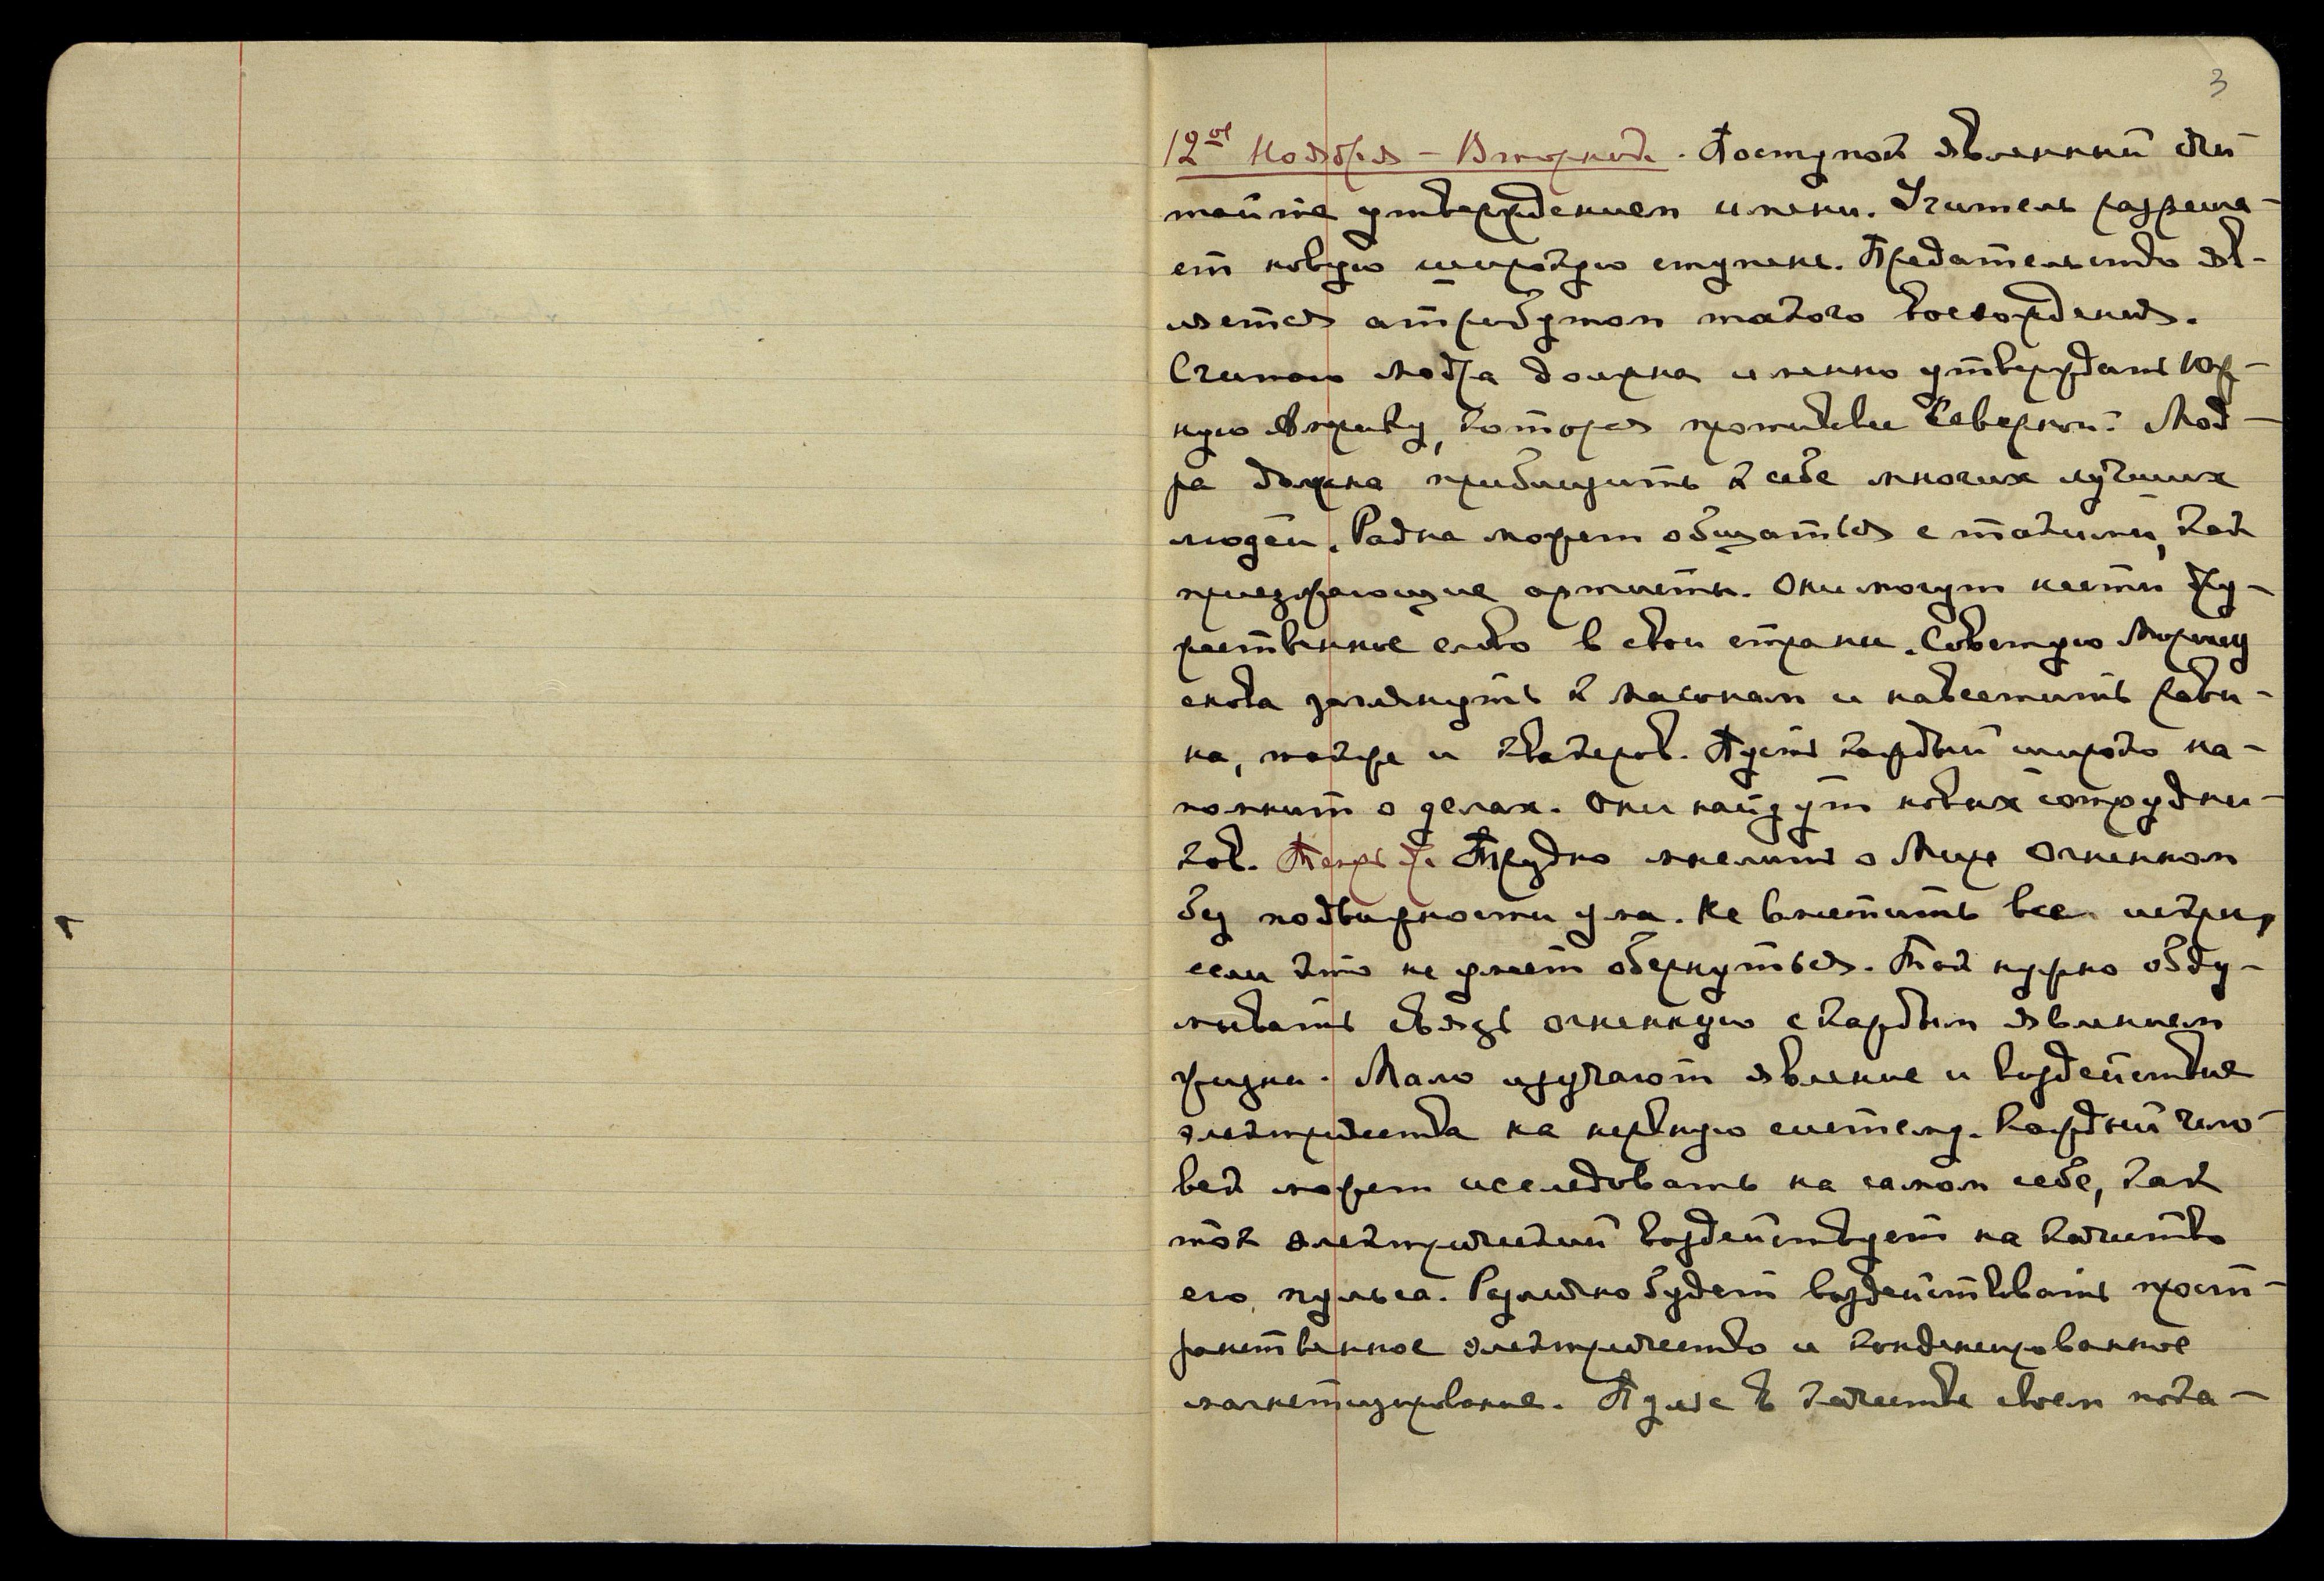 3
12ое Ноября – Вторник. Поступок явленный счи-
тайте утверждением имени. Учитель разреша-
ет новую широкую ступень. Предательство яв-
ляется атрибутом такого восхождения.
Считаю Модра должна именно утверждать Юж-
ную Америку, которая противовес Северной. Мод-
ра должна приблизить к себе многих лучших
людей. Радна может общаться с такими, как
приезжающие артисты. Они могут нести ху-
жественное слово в свои страны. Советую Морису
снова заглянуть к масонам и навестить равви-
на, также и квакеров. Пусть каждый широко на-
помнит о делах. Они найдут новых сотрудни-
ков. Теперь ж. Трудно мыслить о Мире Огненном
без подвижности ума. Не вместить все искры,
если кто не умеет обернуться. Так нужно обду-
мывать связь огненную с каждым явлением
жизни. Мало изучают явление и воздействие
электричества на нервную систему. Каждый чело-
век может исследовать на самом себе, как
ток электрический воздействует на качество
его пульса. Различно будет воздействовать прост-
ранственное электричество и конденсированное
магнетизирование. Пульс в качестве своем пока-